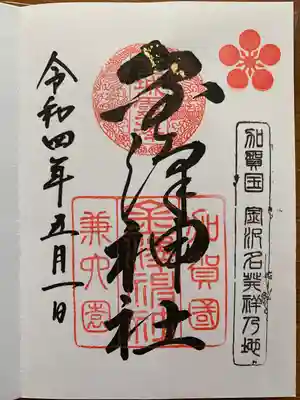 加賀国 金沢名発祥乃地
金澤神社
加賀國
兼六園
令和四年五月一日